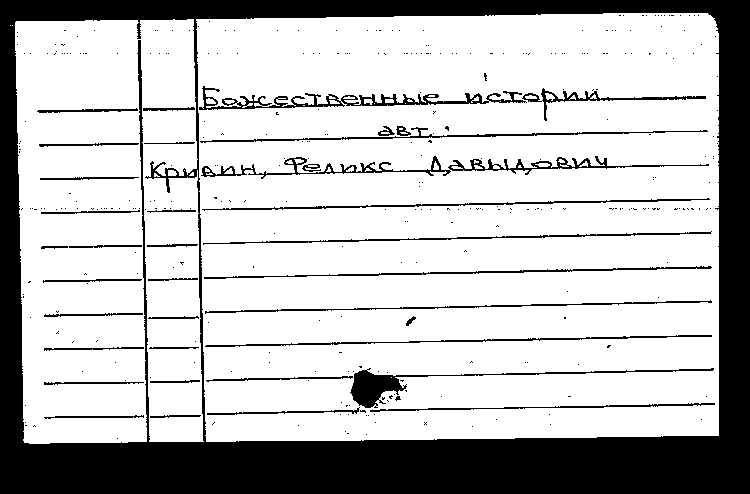 Божественные истории
авт.
Кривин, Феликс Давыдович